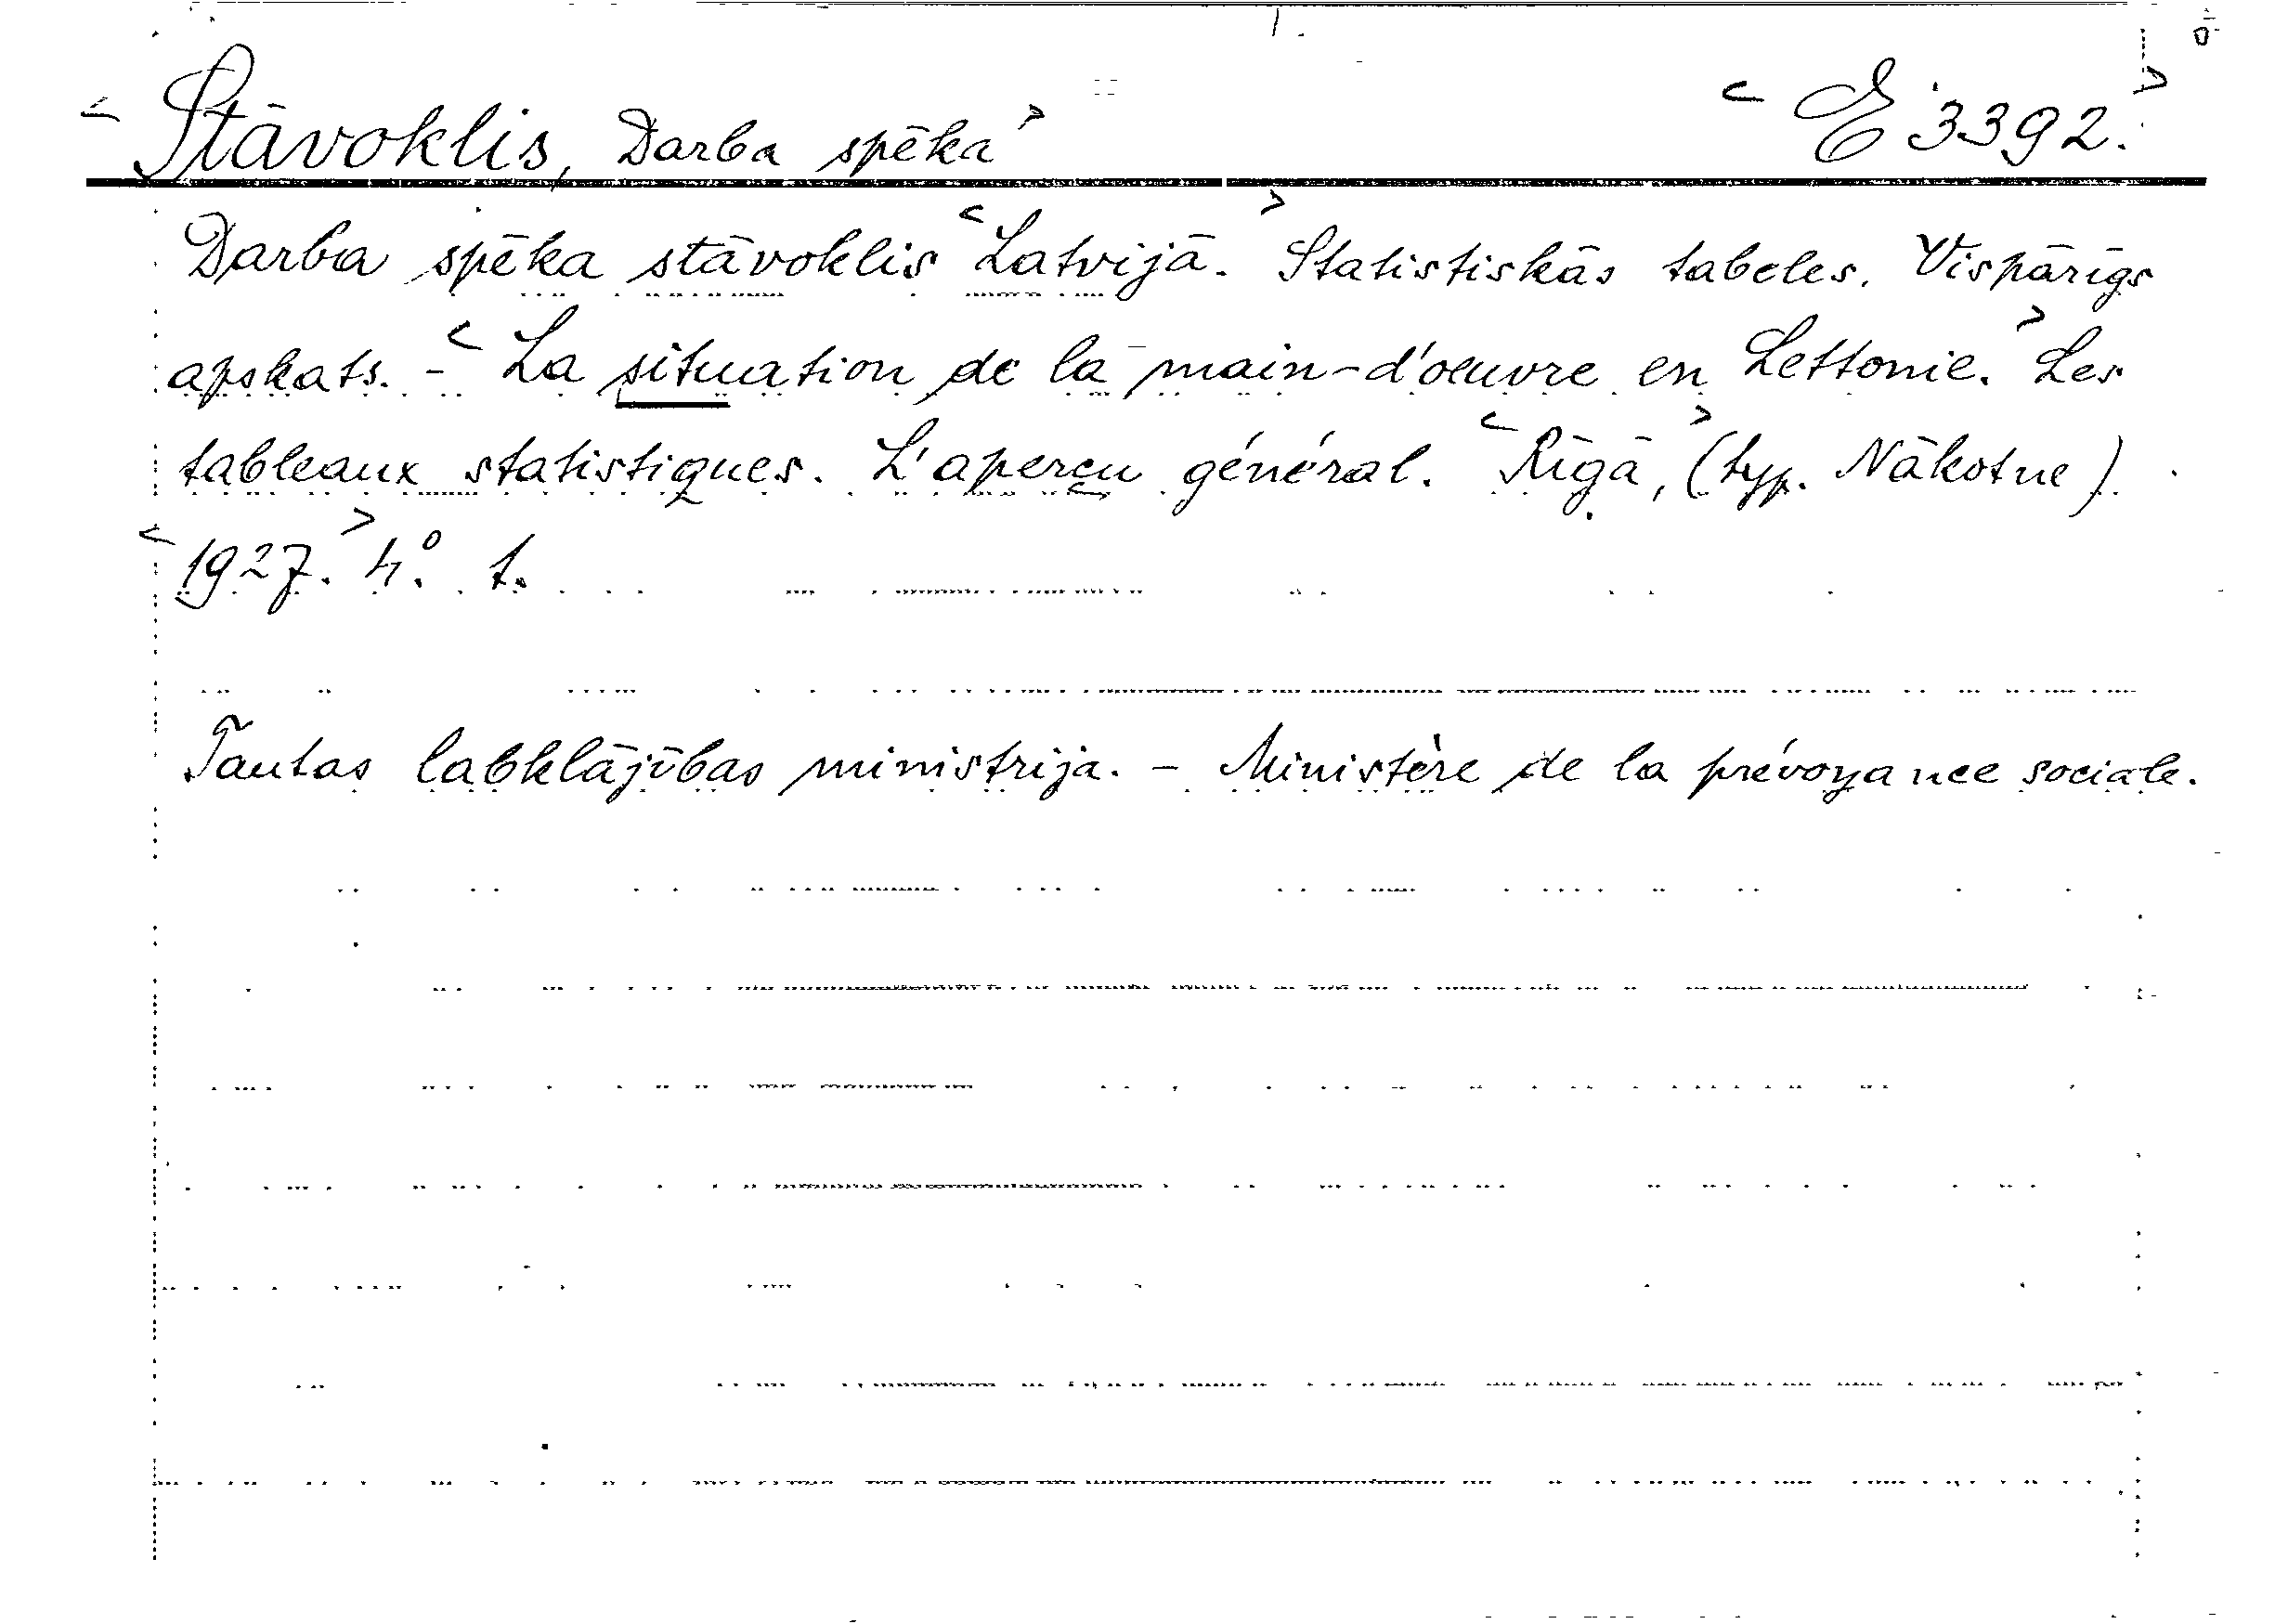 < Stāvoklis, Darba spēka > < E 3392. >
Darba spēka stāvoklis < Latvijā. > Statistiskās tabeles. Vispārīgs
apskats. - < La situation de la main-d'oeuvre en Lettonie. > Les
tableaux statistiques. L'aperçu général. < Rīgā, > (typ. Nākotne).
< 1927. > 4.° t.
Tautas labklājības ministrija. - Ministère de la prévoyance sociale.